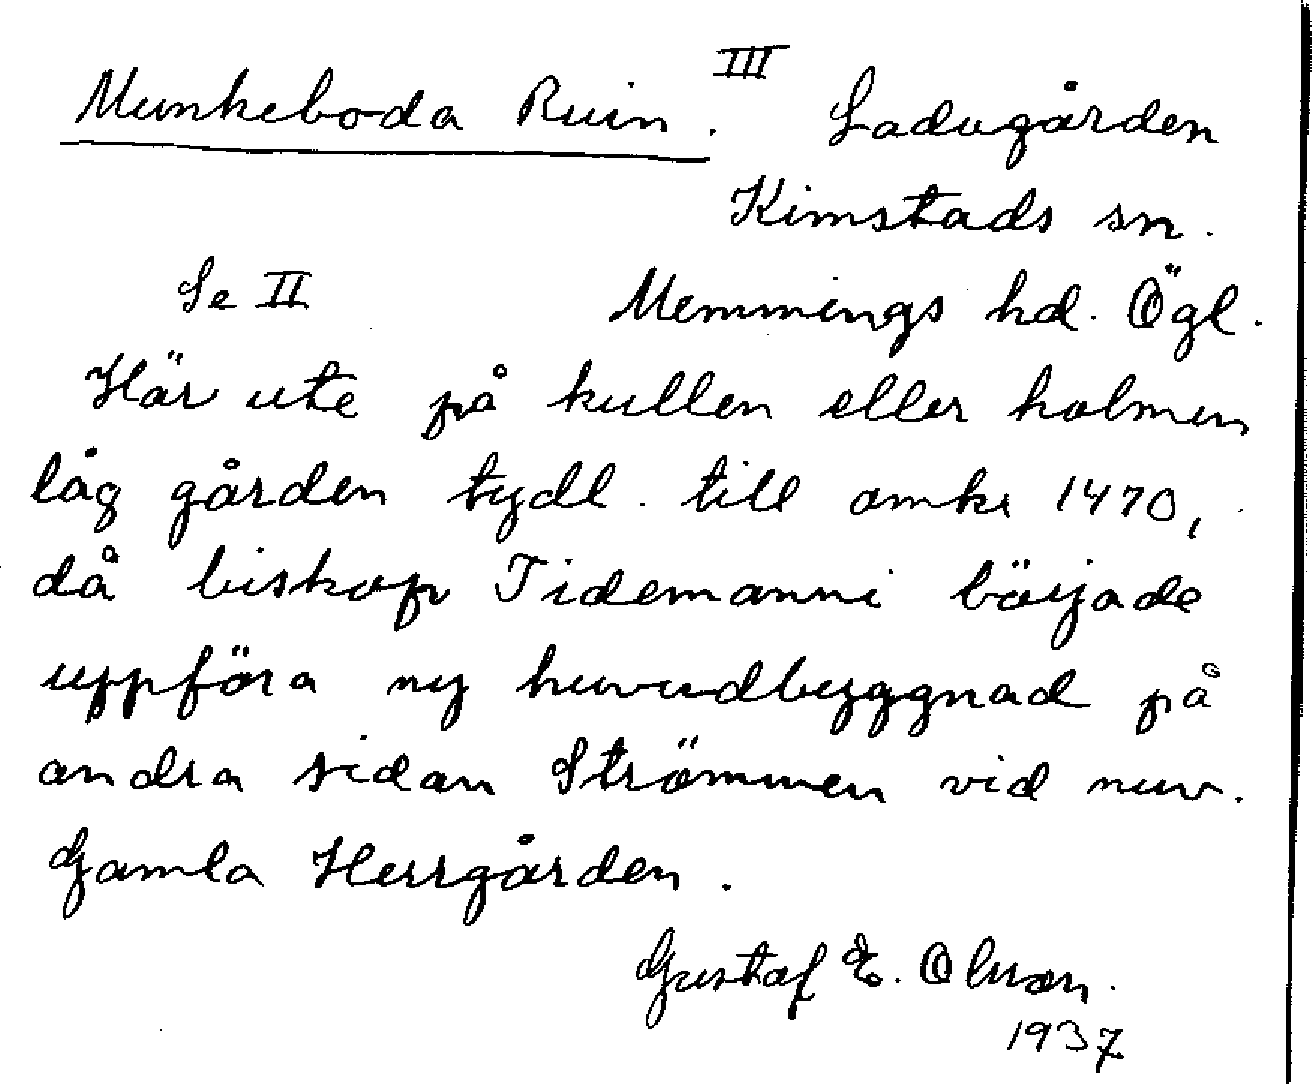 Munkeboda Ruin. III Ladugården
Kimstads sn.
Se II Memmings hd. Ögl.
Här ute på kullen eller holmen
låg gården tydl. till omkr 1470,
då biskop Tidemanni började
uppföra ny huvudbyggnad på
andra sidan Strömmen vid nuv.
Gamla Herrgården.
Gustaf E. Olsson.
1937